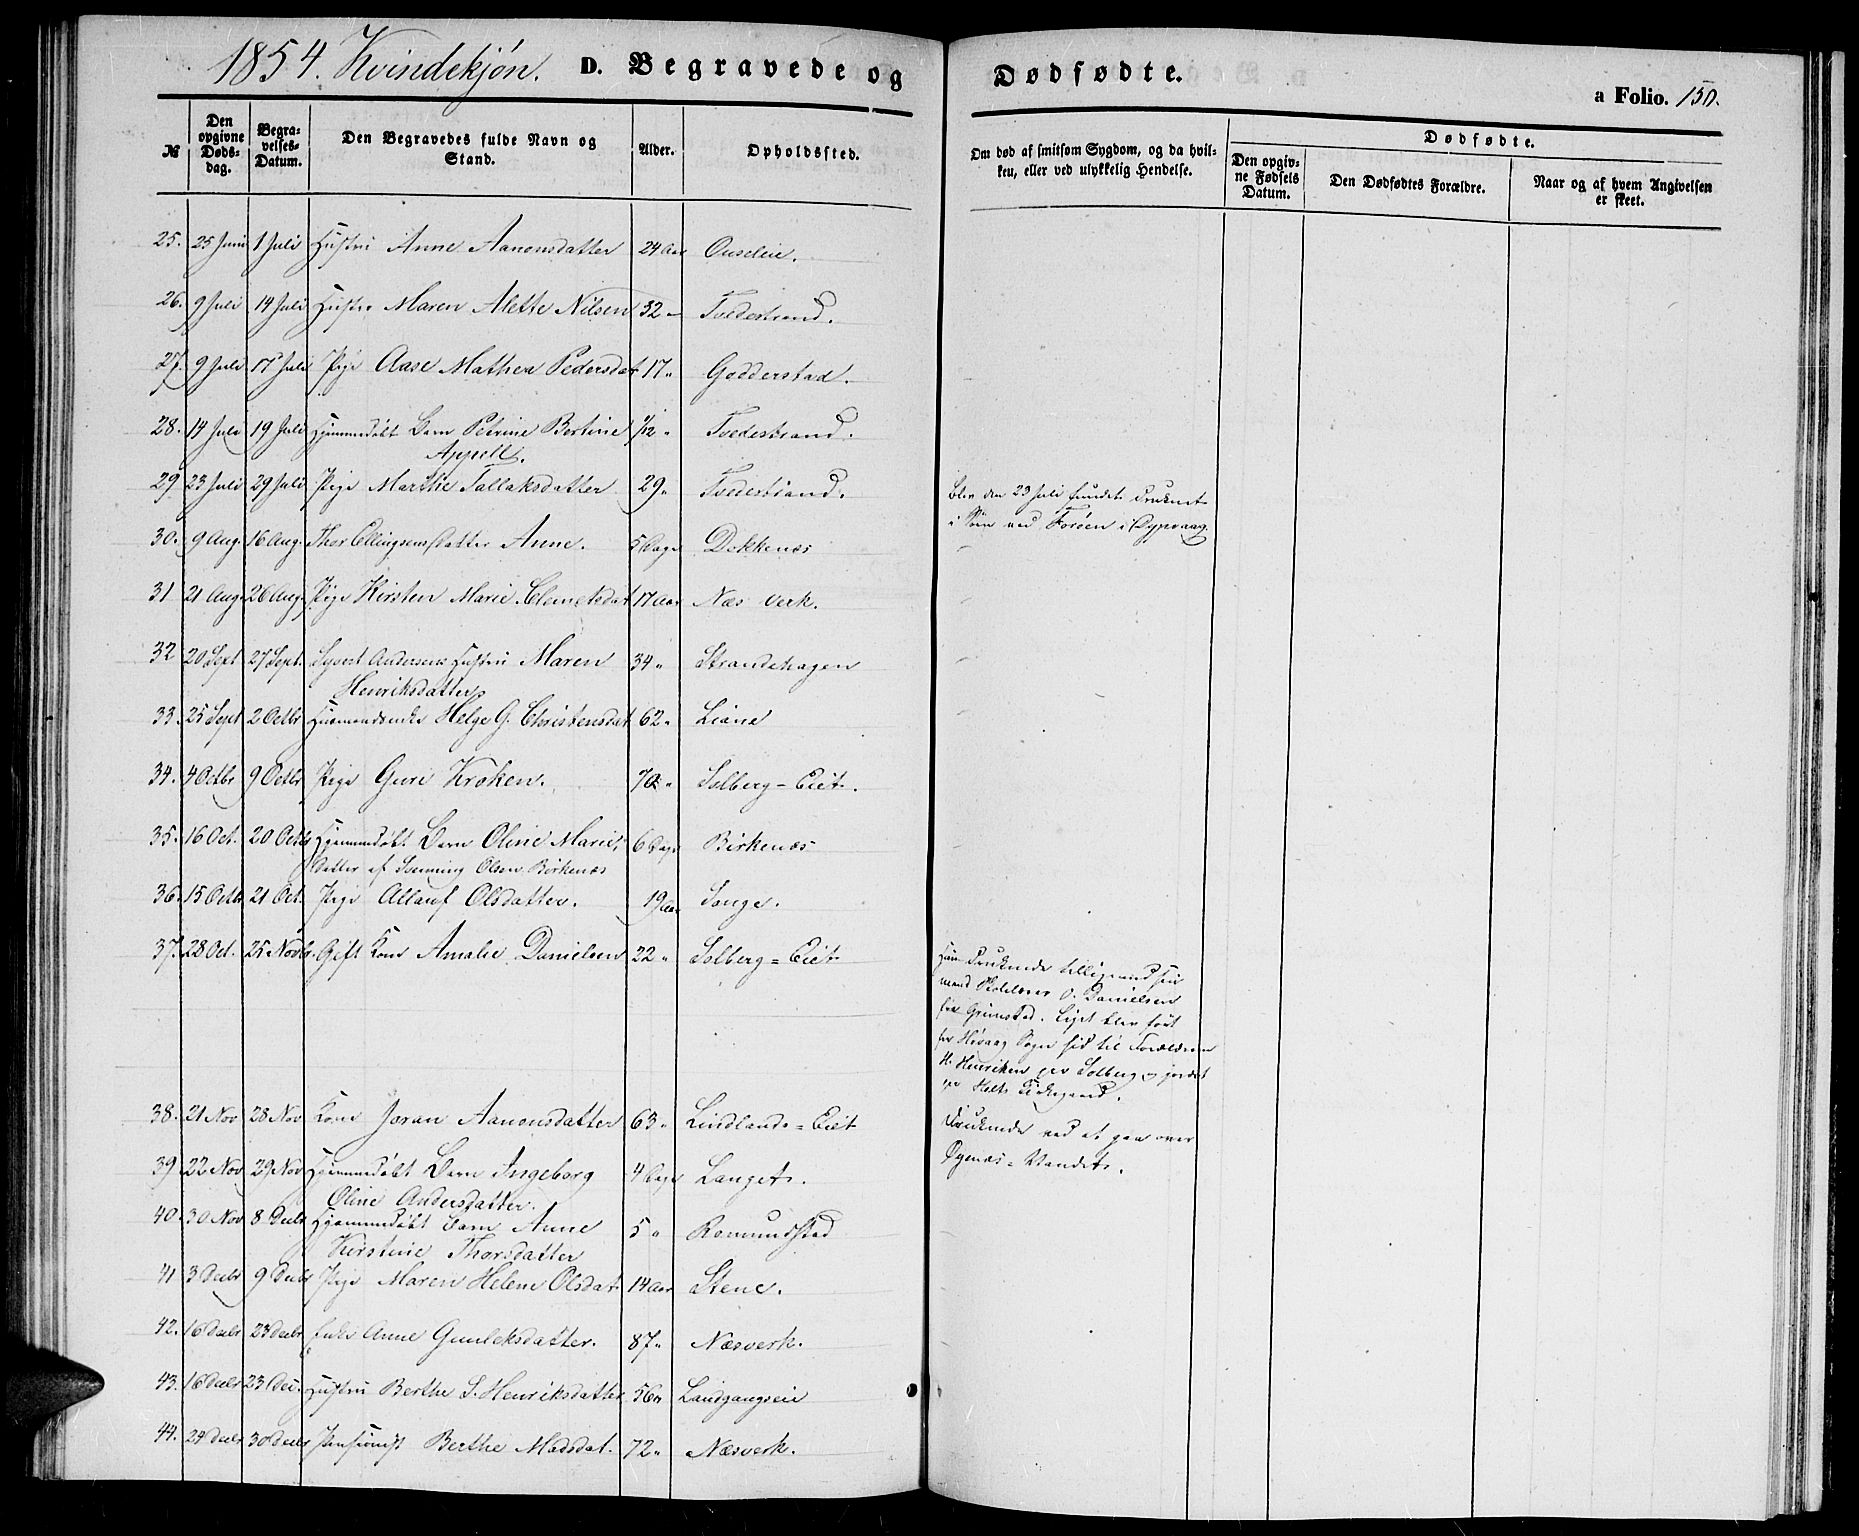 1854. Kvindekjøn. D. Begravede og Dødfødte.
a Folio. 150.
№
Den opgivne Dødsdag.
Begravelses-Datum.
Den Begravedes fulde Navn og Stand.
Alder.
Opholdssted.
Om død af smitsom Sygdom, og da hvilken, eller ved ulykkelig Hendelse.
Dødfødte.
Den opgivne Fødsels Datum.
Den Dødfødtes Forældre.
Naar og af hvem Angivelsen er skeet.
25. 25 Juni 1 Juli Hustru Anne Aanonsdatter 24 Aar Ouseleie.
26. 9 Juli 14 Juli Hustru Maren Alette Nilsen 32 " Tvedestrand.
27. 9 Juli 17 Juli Pige Aase Mathea Pedersdat 17 " Godderstad.
28. 14 Juli 19 Juli Hjemmedøbt Barn Petrine Bertine 1/12 " Tvedestrand.
Appelt.
29 23 Juli 29 Juli Pige Marthe Tallaksdatter 29 " Tvedestrand. Blev den 23 Juli fundet druknet
i Søen ved Forøen i Dypvaag.
30. 9 Aug. 16 Aug. Thor Ellingsens datter Anne. 5 Dage Dekkenæs
31 21 Aug. 26 Aug. Pige Kirsten Marie Clemetsdat 17 Aar Næs Verk.
32 20 Sept 27 Sept. Syvert Andersens Hustru Maren 34 " Strandehagen
Henriksdatter
33. 25 Sept 2 Octbr Huusmandsenke Helge G. Christensdat 62 " Liane
34. 4 Octbr 9 Octbr Pige Guri Krøken. 70 " Solberg-Eiet.
35. 16 Oct. 20 Octbr Hjemmedøbt Barn Oline Marie, 6 Dage Birkenæs
datter af Svenning Olsen Birkenæs
36. 15 Octbr 21 Oct. Pige Allauf Olsdatter. 19 Aar Songe.
37. 28 Oct. 25 Novbr. Gift Kone Amalie Danielsen 22 " Solberg-Eiet
druknede tilligemed sin
mand O. Danielsen
Grimstad. Liget blev ført
Høvaag Sogn hid til Forældrene
H. Henriksen Solberg og jordet
Holts Kirkegaard.
38. 21 Nov 28 Nov Kone Joran Aanonsdatter 63 " Lindlands-Eiet Druknede ved at gaa over
Øgenæs-Vandet.
39. 22 Nov 29 Nov Hjemmedøbt Barn Ingeborg 4 Dage Langet.
Oline Andersdatter.
40. 30 Nov 8 Decbr Hjemmedøbt Barn Anne 5 " Romundstad
Kirstine Thorsdatter
41 3 Decbr 9 Decbr Pige Maren Helene Olsdat 14 Aar Stene.
42. 16 Decbr 23 Decbr Enke Anne Gunleksdatter. 87 " Næsverk.
43. 16 Decbr 23 Dec. Hustru Berthe S. Henriksdatter 56 " Landgangseie
44. 24 Decbr 30 Decbr Pensionist Berthe Madsdat. 72 " Næsverk.